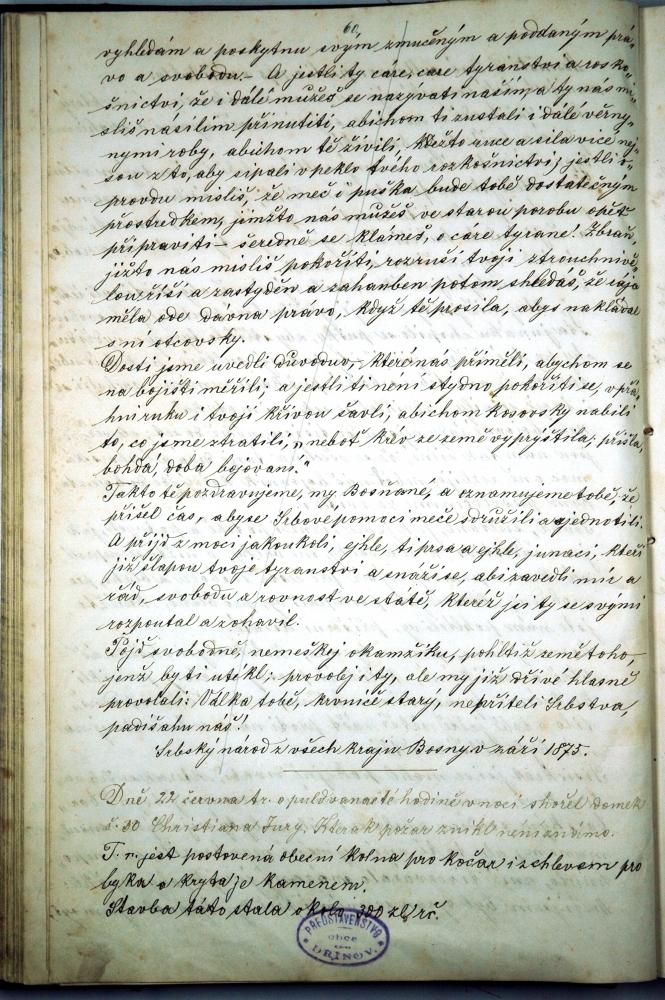 60.
vyhledám a poskytnu svým zmučeným a poddaným prá-
vo a svobodu. – A jestli ty cáre, care tyranství a rosko-
šnictví, že i dálé mužeš se nazyvati naším a ty nás mi-
slíš násilím přinutiti, abichom ti zustali i dálé věrny-
nymi roby, abichom tě živili, kdežto ruce a sila více nej-
sou z to, aby sipali v peklo tvého rozkošnictví; jestli o-
provdu misliš, že meč i puška bude tobě dostatečným
prostredkem, jimžto nás mužeš ve starou porobu opět
připraviti – šeredně se klámeš, o care tyrane! Zbraň,
jižto nás misliš pokořiti, rozruší tvoji ztrouchnivě-
lou říši a zastyděn a zahanben potom shledáš, že rája
měla ode davna právo, když tě prosila, abys nakládal
s ní otcovsky.
Dosti jsme uvedli důvoduv, které nás přiměli, abychom se
na bojišti měřili; a jestli ti není stydno pokořiti se, vprá-
hni ruku i tvoji křivou šavli, abichom kosovsky nabili
to, co jsme ztratili, „neboť kráv ze země vyprýštila; přišla,
bohdá, doba bojovaní.“
Takto tě pozdravujeme, my Bosňané, a oznamujeme tobě, že
přišel čas, abyse Srbové pomocí meče sdružili a sjednotili.
A přijď z moci jakoukoli, ejhle, ti prsa a ejhle, junaci, kteří
již šlapou tvoje tyranství a snáží se, abi zavedli mír a
řád, svobodu a rovnost ve státě, kteréž jsi ty se svými
rozpoutal a zohavil.
Pojď svobodně, nemeškej okamžiku, pohltiž země toho,
jenž by ti utěkl; provolej i ty, ale my již dříve hlasně
provolali: Válka tobě, krvníče starý, nepříteli Srbstva,
padišahu náš!
Srbský národ z všech kraju Bosny v září 1875.
Dně 22 června tr. o puldvanacté hodině v noci shořel domek
č. 30 Christiana Jury. Kterak požar znikl není známo.
T. r. jest postovená obecní kolna pro kočár i z chlevem pro
byka a kryta je kamenem.
Stavba táto stala okolo 300 zl. rč.
PŘEDSTAVENSTVO
obce
DŘINOV.